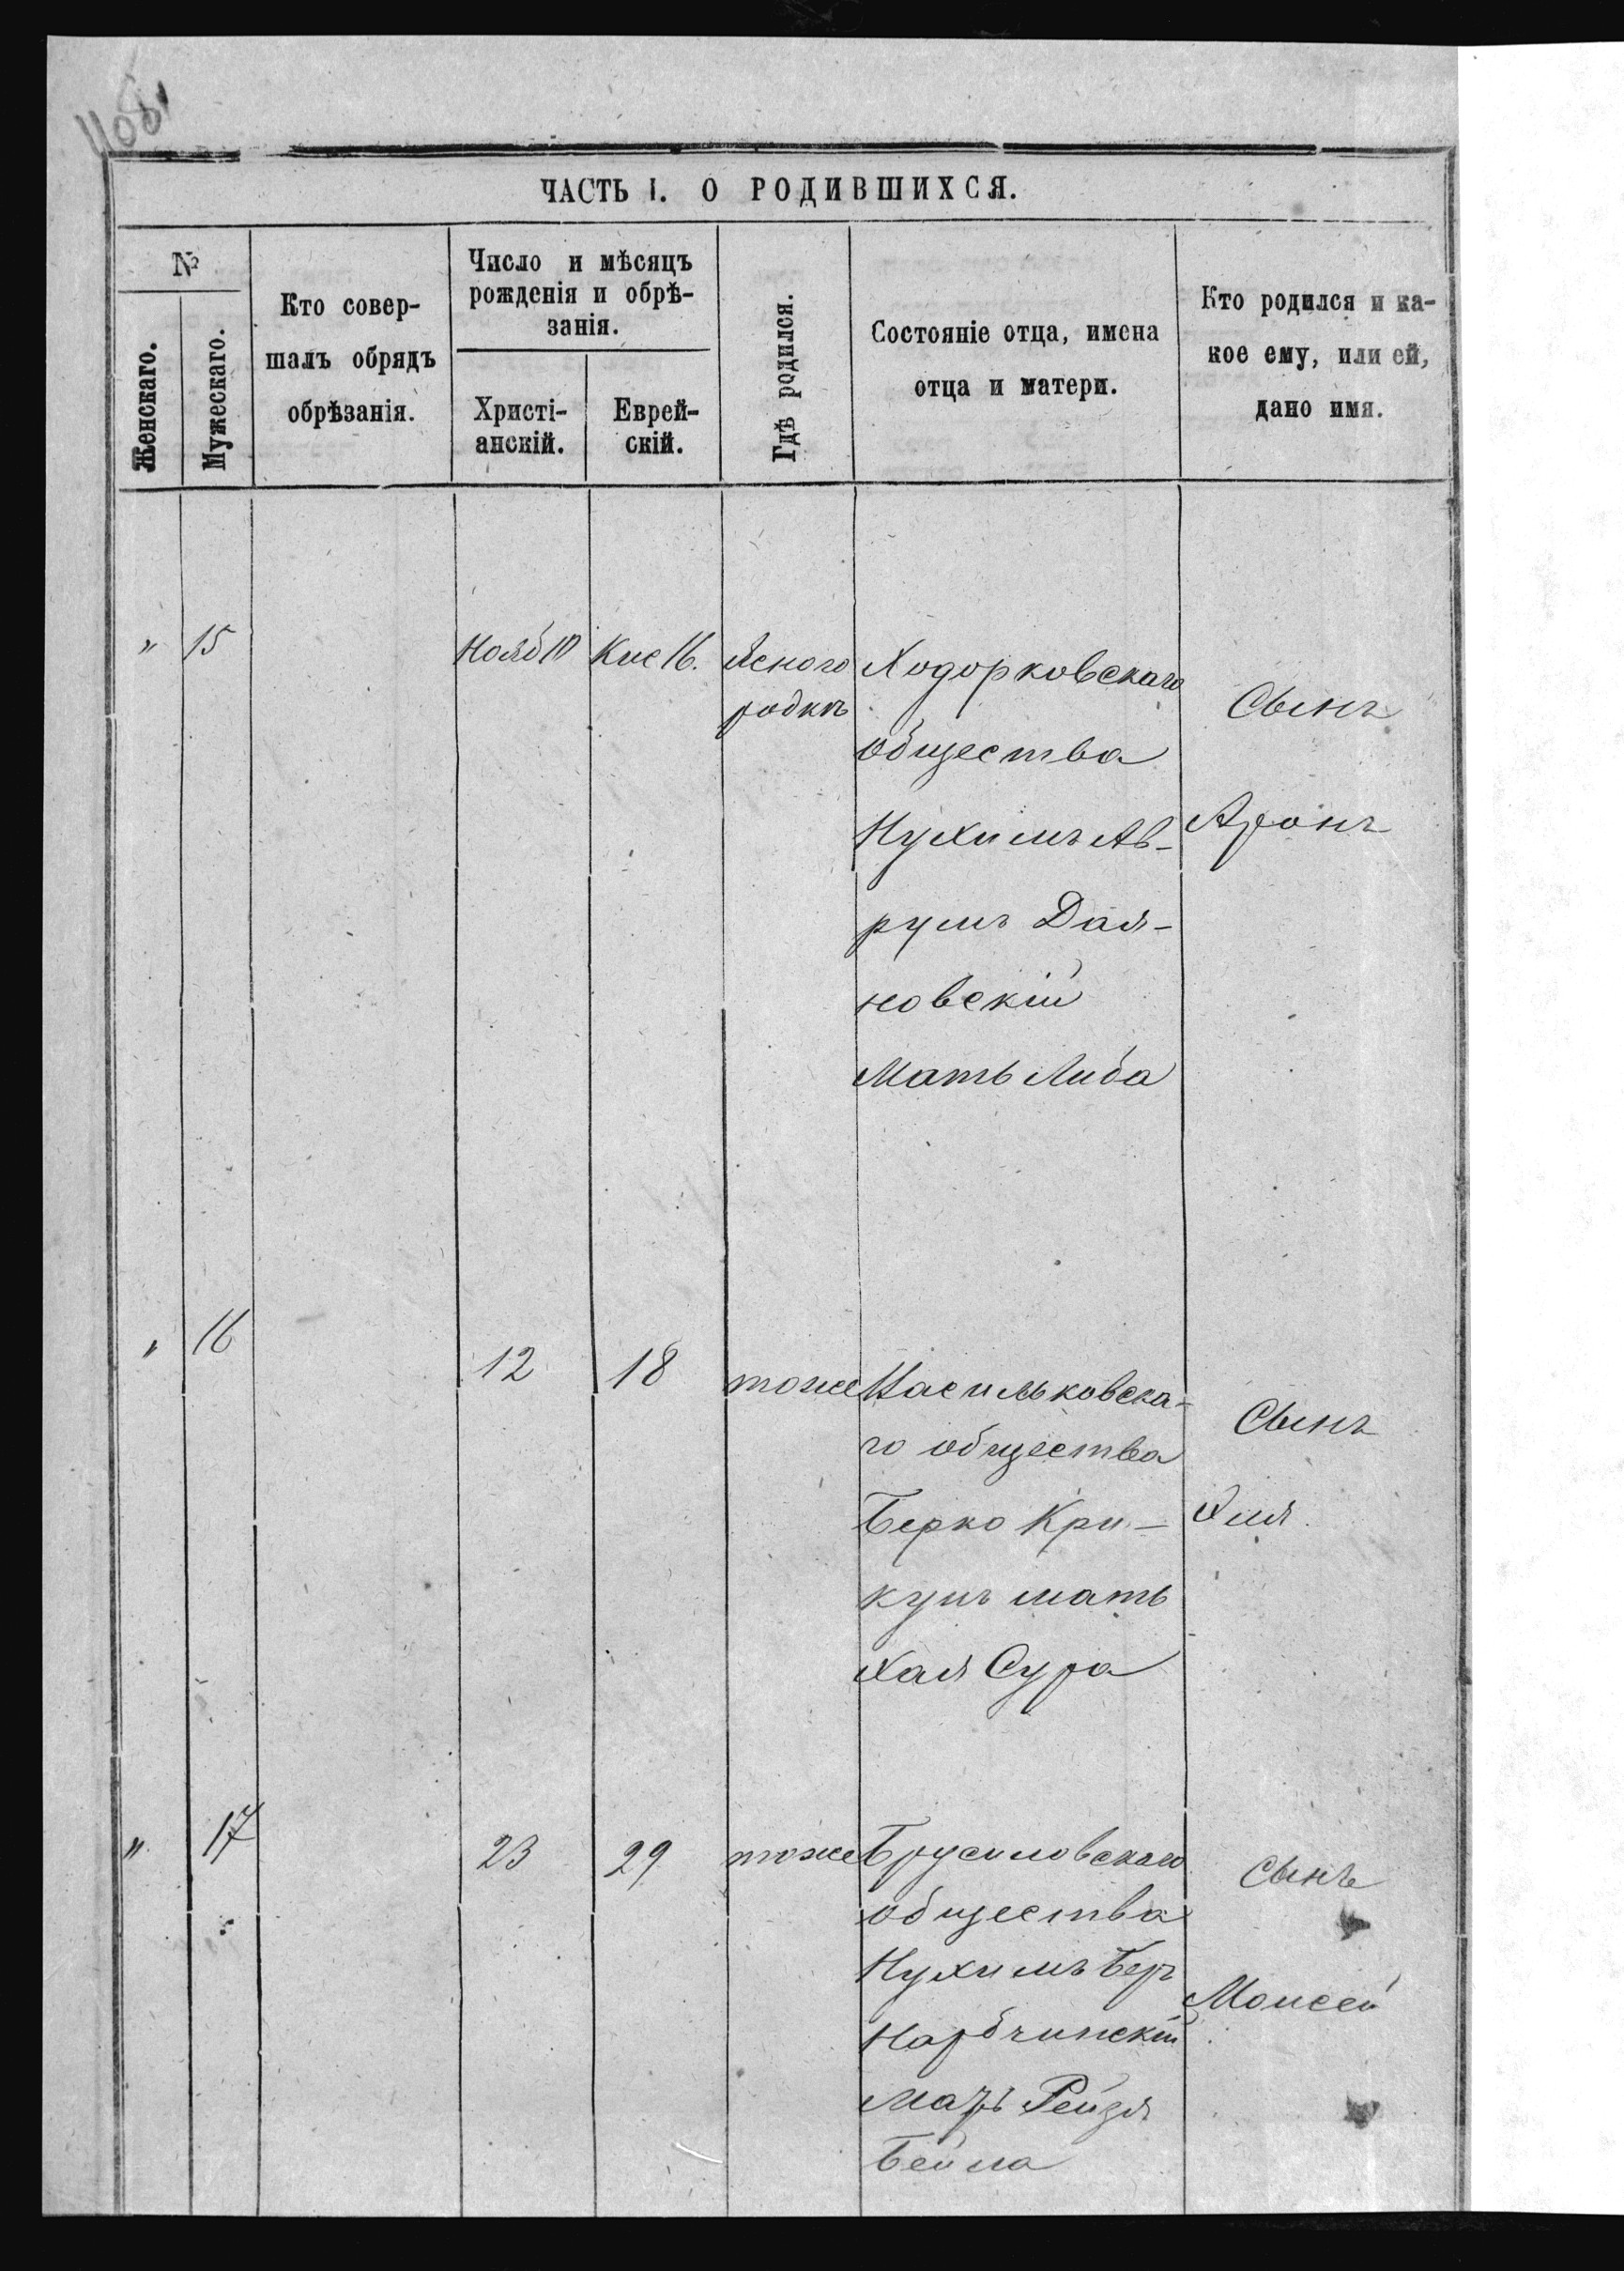 1108
ЧАСТЬ I. О РОДИВШИХСЯ.
№
Женскаго.
Мужескаго.
Кто совер-
шалъ обрядъ
обрѣзанія.
Число и мѣсяцъ
рожденія и обрѣ-
занія.
Христі-
анскій.
Еврей-
скій.
Гдѣ родился.
Состояніе отца, имена
отца и матери.
Кто родился и ка-
кое ему, или ей,
дано имя.
" 15 Нояб 10 Кис 16. Ясного Ходорковскаго
родкѣ Сынъ
общества
Нухимъ Ав- Аронъ
румъ Дая-
новскій
Мать Либа
" 16 12 18 тоже Васильковска-
го общества Сынъ
Берко Кри-
кунъ мать
Хая Сура
" 17 23 29 тоже Брусиловскаго Сынъ
общества
Нухимъ Беръ Моисей
Мать Рейзя
Бейла